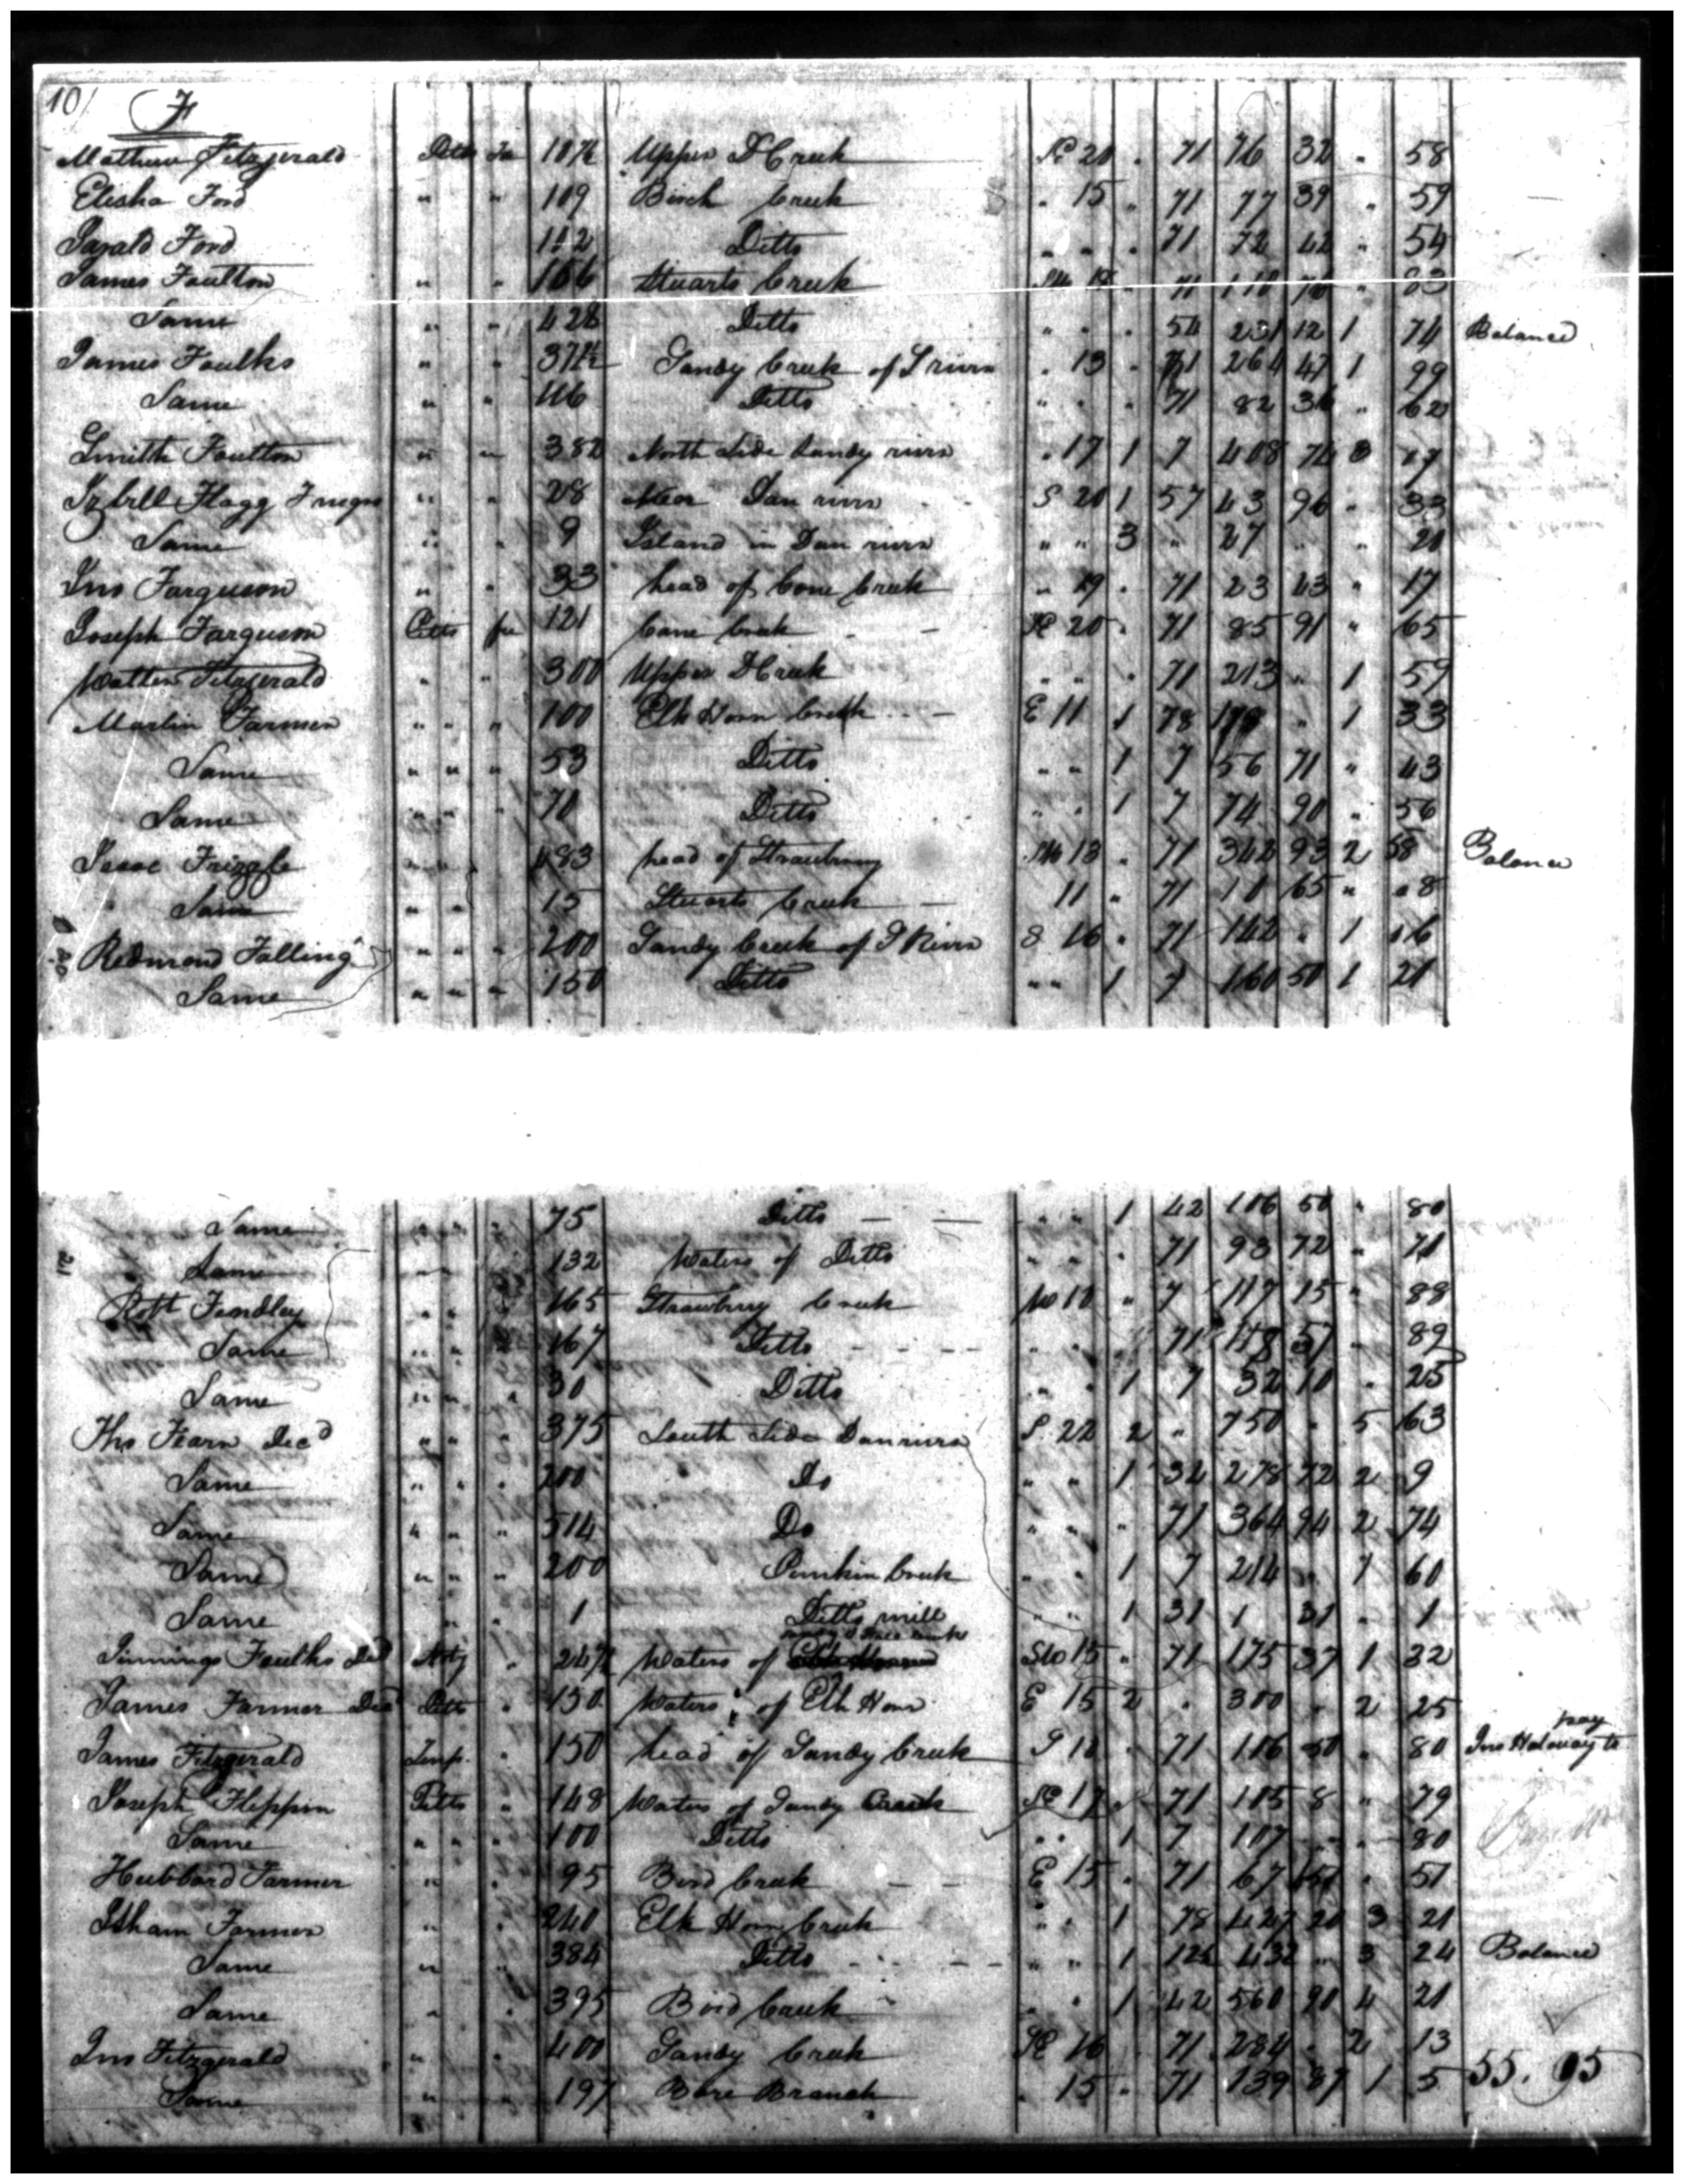 10/ F
Mathew Fitzgerald Pitts fee 107½ Upper D Creek SE 20 " 71 76 32 " 58
Elisha Ford " " 109 Birch Creek " 15 " 71 77 39 " 59
Ford " " 102 Ditto " " " 71 72 42 " 54
James Faulton " " 166 Stuarts Creek 71 118 " 83
Same " " 428 Ditto " " " 54 231 12 1 74 Balance
James Faulks " " 371½ Sandy Creek of S river " 13 " 71 264 47 1 99
Same " " 116 Ditto " " " 71 82 36 " 62
Smith Faulton " " 382 North side Sandy river " 17 1 7 408 74 3 07
Flagg F negro " " 28 Near Dan river S 20 1 57 43 96 " 33
Same " " 9 Island in Dan river " " 3 " 27 " " 20
Jno Farguson " " 33 head of Cane Creek " 19 " 71 23 43 " 17
Joseph Farguson Pitts fee 121 Cane Creek SE 20 " 71 85 91 " 65
Fitzgerald " " 300 Upper D Creek " " " 71 213 " 1 59
Marlin Farmer " " " 100 Elk Horn Creek E 11 1 78 178 " 1 33
Same " " " 53 Ditto " " 1 7 56 71 " 43
Same " " " 70 Ditto " " 1 7 74 90 " 56
Isaac Frizzle " " " 483 head of Strawberry SW 13 " 71 342 93 2 58 Balance
Same " " 15 Stuarts Creek 11 " 71 10 65 " 8
Redmond Falling " " " 200 Sandy Creek of S River S 16 " 71 142 " 1 06
Same " " " 150 Ditto " " 1 7 160 50 1 21
Same " " " 75 Ditto " " 1 42 106 50 " 80
Same " " 132 Waters of Ditto " " " 71 93 72 " 71
Robt Fendley " " " 165 Strawberry Creek " 7 117 15 " 88
Same " " 167 Ditto " " 71 118 57 " 89
Same " " " 30 Ditto " " 1 7 32 10 " 25
Tho Fearn Decd " " " 375 South side Dan river S 22 2 " 750 " 5 63
Same " " " 200 Do " " 1 32 278 72 2 9
Same " " " 514 Do " " " 71 364 94 2 74
Same " " " 200 Pumkin Creek " " 1 7 214 " 1 60
Same " " " 1 Ditto mill " " 1 31 1 31 " 1
Jinnings Faulks Decd " 247 Waters of SW 15 " 71 175 37 1 32
James Farmer Decd Pitts " 150 Waters of Elk Horn E 15 2 " 300 " 2 25
James Fitzgerald " 150 head of Sandy Creek " 71 106 50 " 80 Jno pay to
Joseph Flippin Pitts " 148 Waters of Sandy Creek SE 17 " 71 105 8 " 79
Same " " " 100 Ditto " " 1 7 107 " " 80
Hubbard Farmer " " 95 Bird Creek E 15 " 71 67 " 51
Isham Farmer " " 240 Elk Horn Creek " " 1 78 427 20 3 21
Same " " 384 Ditto " " 1 12½ 432 " 3 24 Balance
Same " " 395 Bird Creek " " 1 42 560 90 4 21
Jno Fitzgerald " " 400 Sandy Creek SE 16 " 71 284 " 2 13
Same " " 197 Bare Branch " 15 " 71 139 87 1 5 55.95